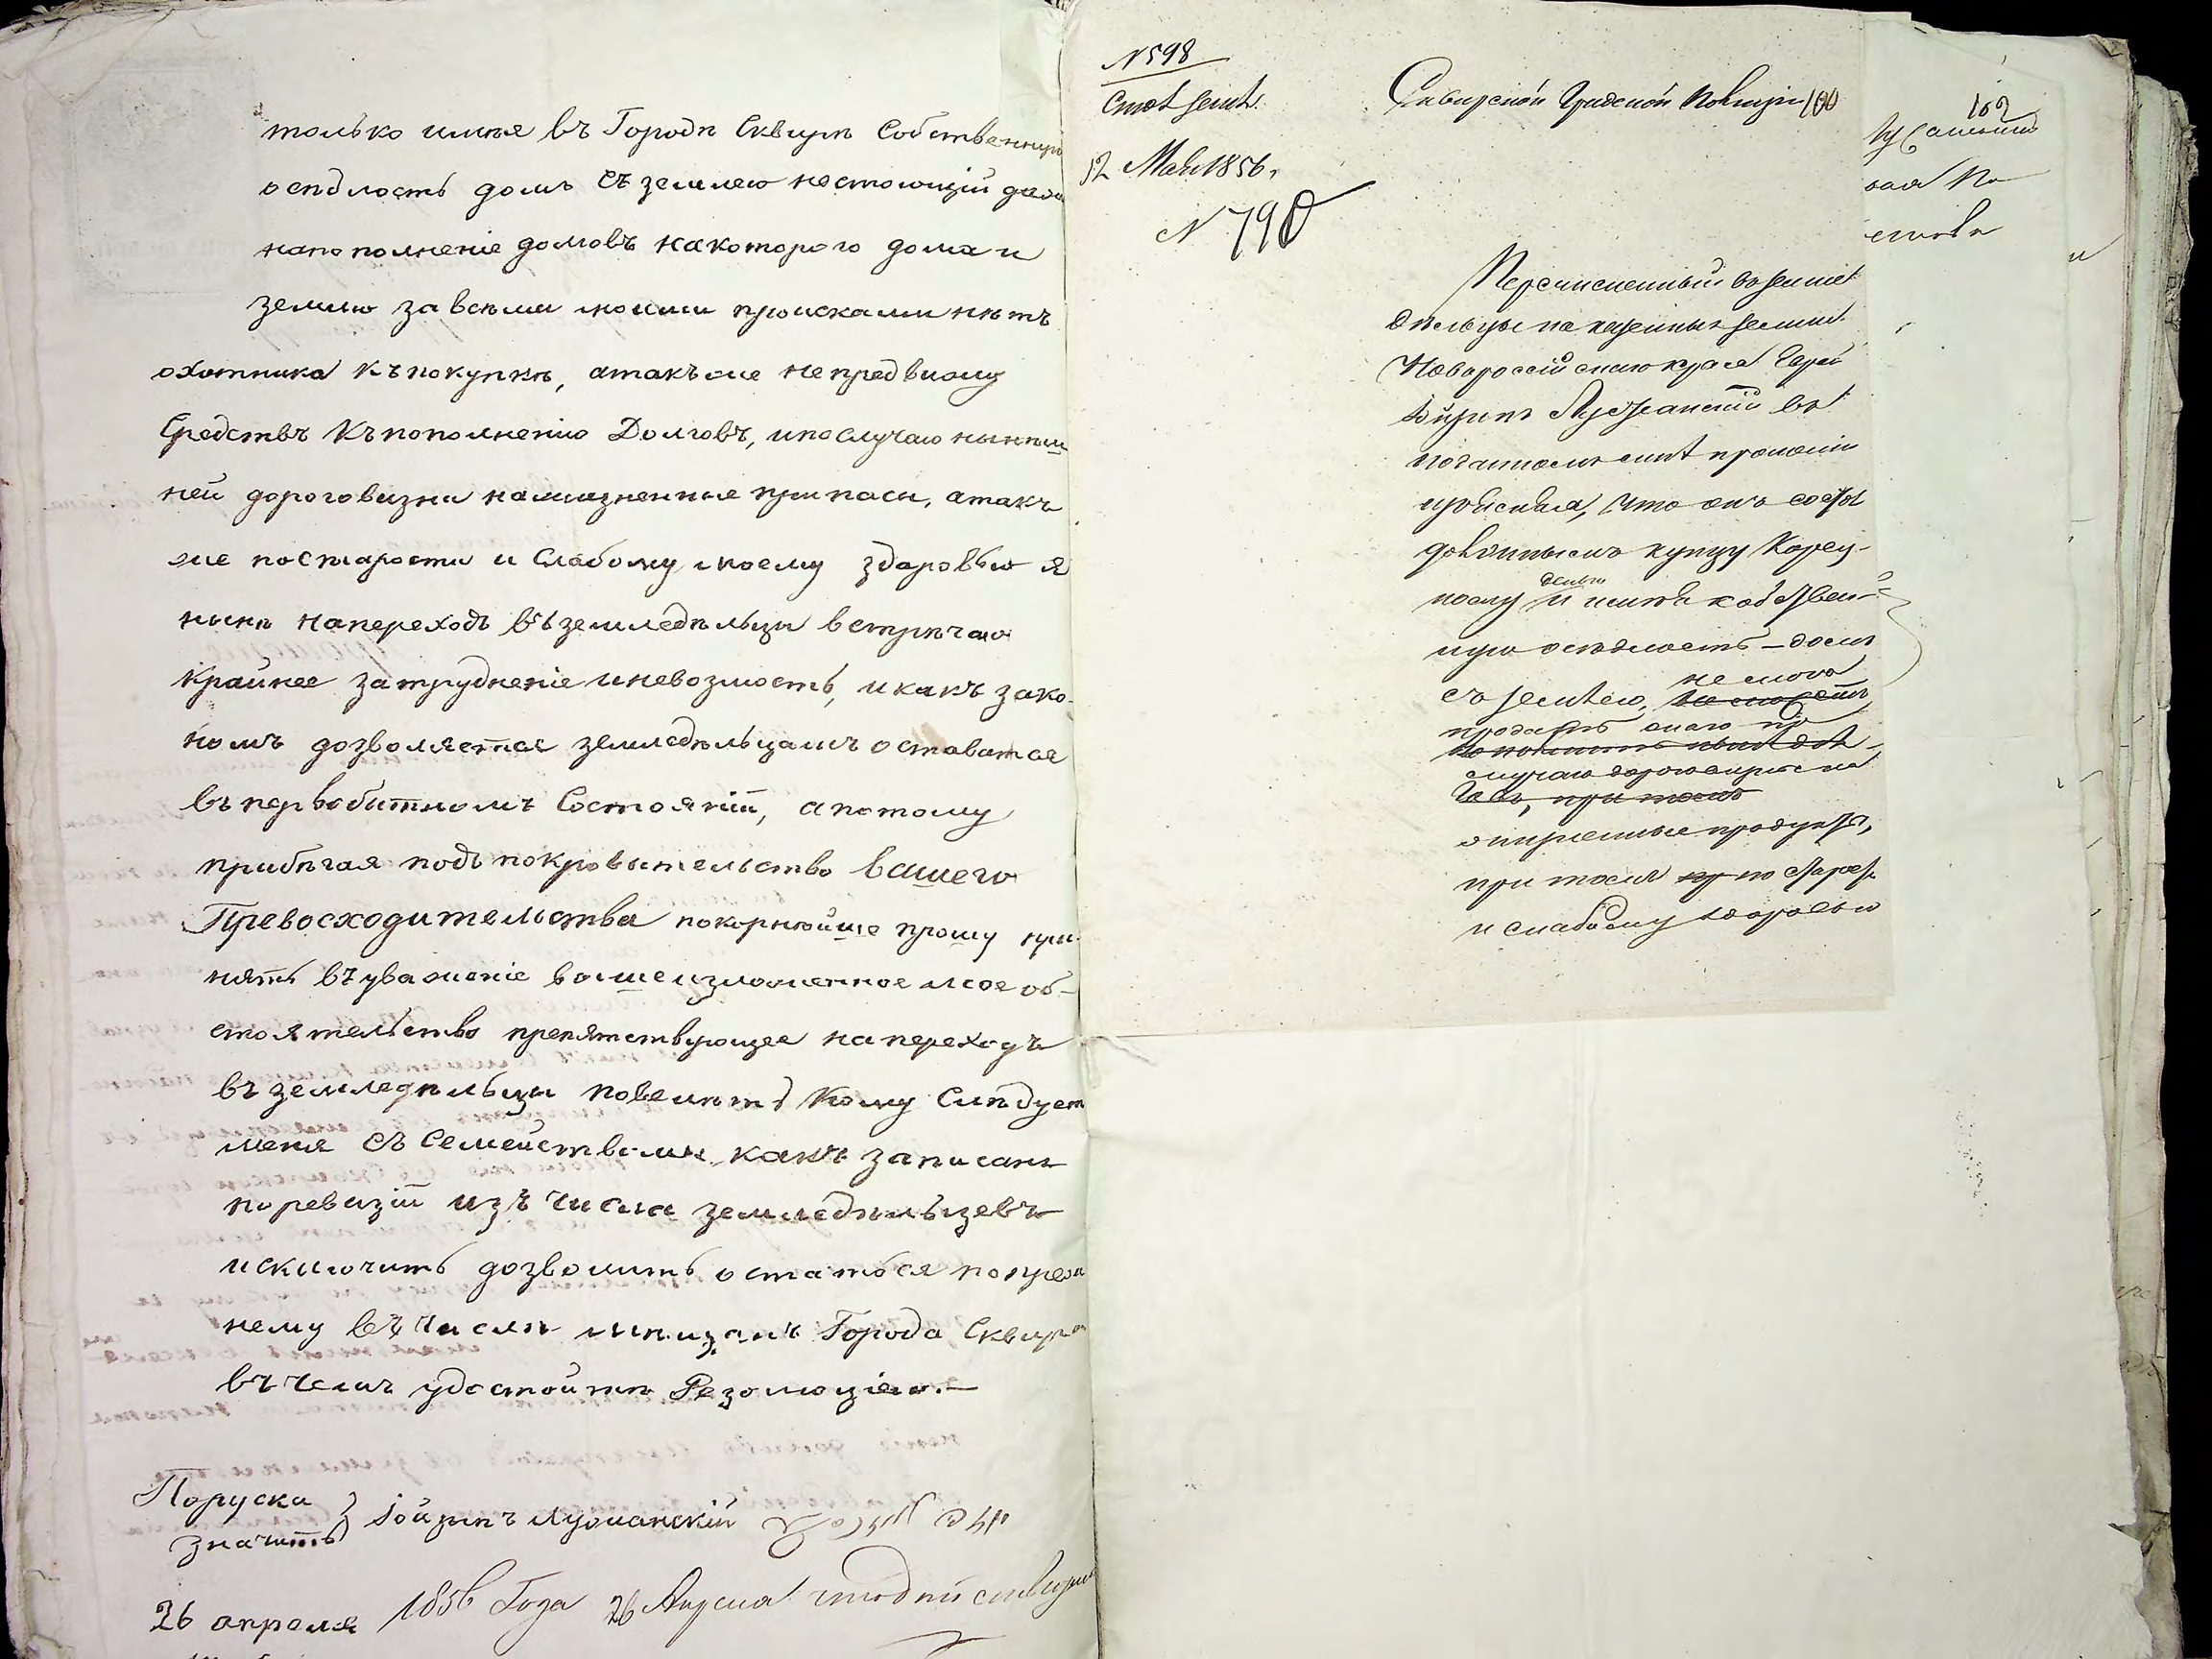 только имѣя въ Городѣ Сквирѣ Собственную
осѣдлость домъ съ землею нестоющій даже
напополненіе долговъ накоторого дома и
землю завсѣми моими происками нѣтъ
охотника къпокупкѣ, атакъже непредвижу
Средствъ Къпополненію Долговъ, ипослучаю нынѣш
ней дороговизни нажизненные припасы, атакъ
же постарости и Слабому моему здоровью я
нынѣ напереходъ въземледѣльцы встрѣчаю
крайнее затрудненіе иневозмость, икакъ зако-
номъ дозволяется земледѣльцамъ оставатся
въпервобитномъ Состояніи, апотому
прибѣгая подъ покровительство вашего
Превосходительства покорнѣйше прошу при-
нять въуваженіе вышеизложенное мое об-
стоятельство препятствующее напереходъ
въземледѣльцы повелѣть Кому Слѣдует
меня съ Семействомъ какъ записанъ
поревизіи изъ числа земледѣльцевъ
исключить дозволить остатся попреж
нему въ числѣ мѣщанъ Города Сквиры
въчемъ удостоить Резолюціею.—
Поруска
значитъ } Іойринъ Лужанскій
26 апреля 1856 Года 26 Апреля
N 598
Стол земл.
12 Мая 1856.
N 790
Сквирской Градской Полиціи 100
Перечисленный въземле
дѣльцы на казенныя земли
Новороссійскаго края Еврей
Лужанскій въ
поданномъ мнѣ прошеніи
изъяснилъ, что онъ состоя
должнымъ купцу Корец-
кому деньги и имѣя собствен-
ную осѣдлость – домъ
съ землею, не мога
продать оную по
случаю дороговизны на
жизненные продукты,
при томъ по старос.
и слабому здоровью
102